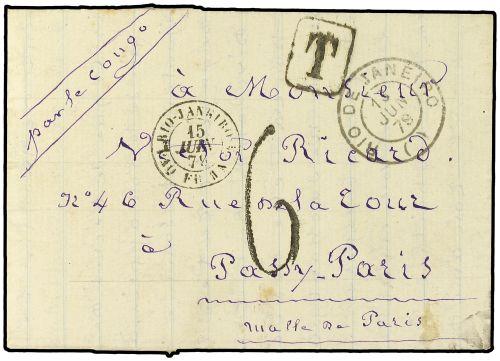 par le Congo
T
à Monsieur
RIO DE JANEIRO
15
JUN
79
RIO-JANEIRO
15
JUIN
79
V Ricard.
N° 46 Rue de la Tour
6
à
Passy-Paris
Malle de Paris